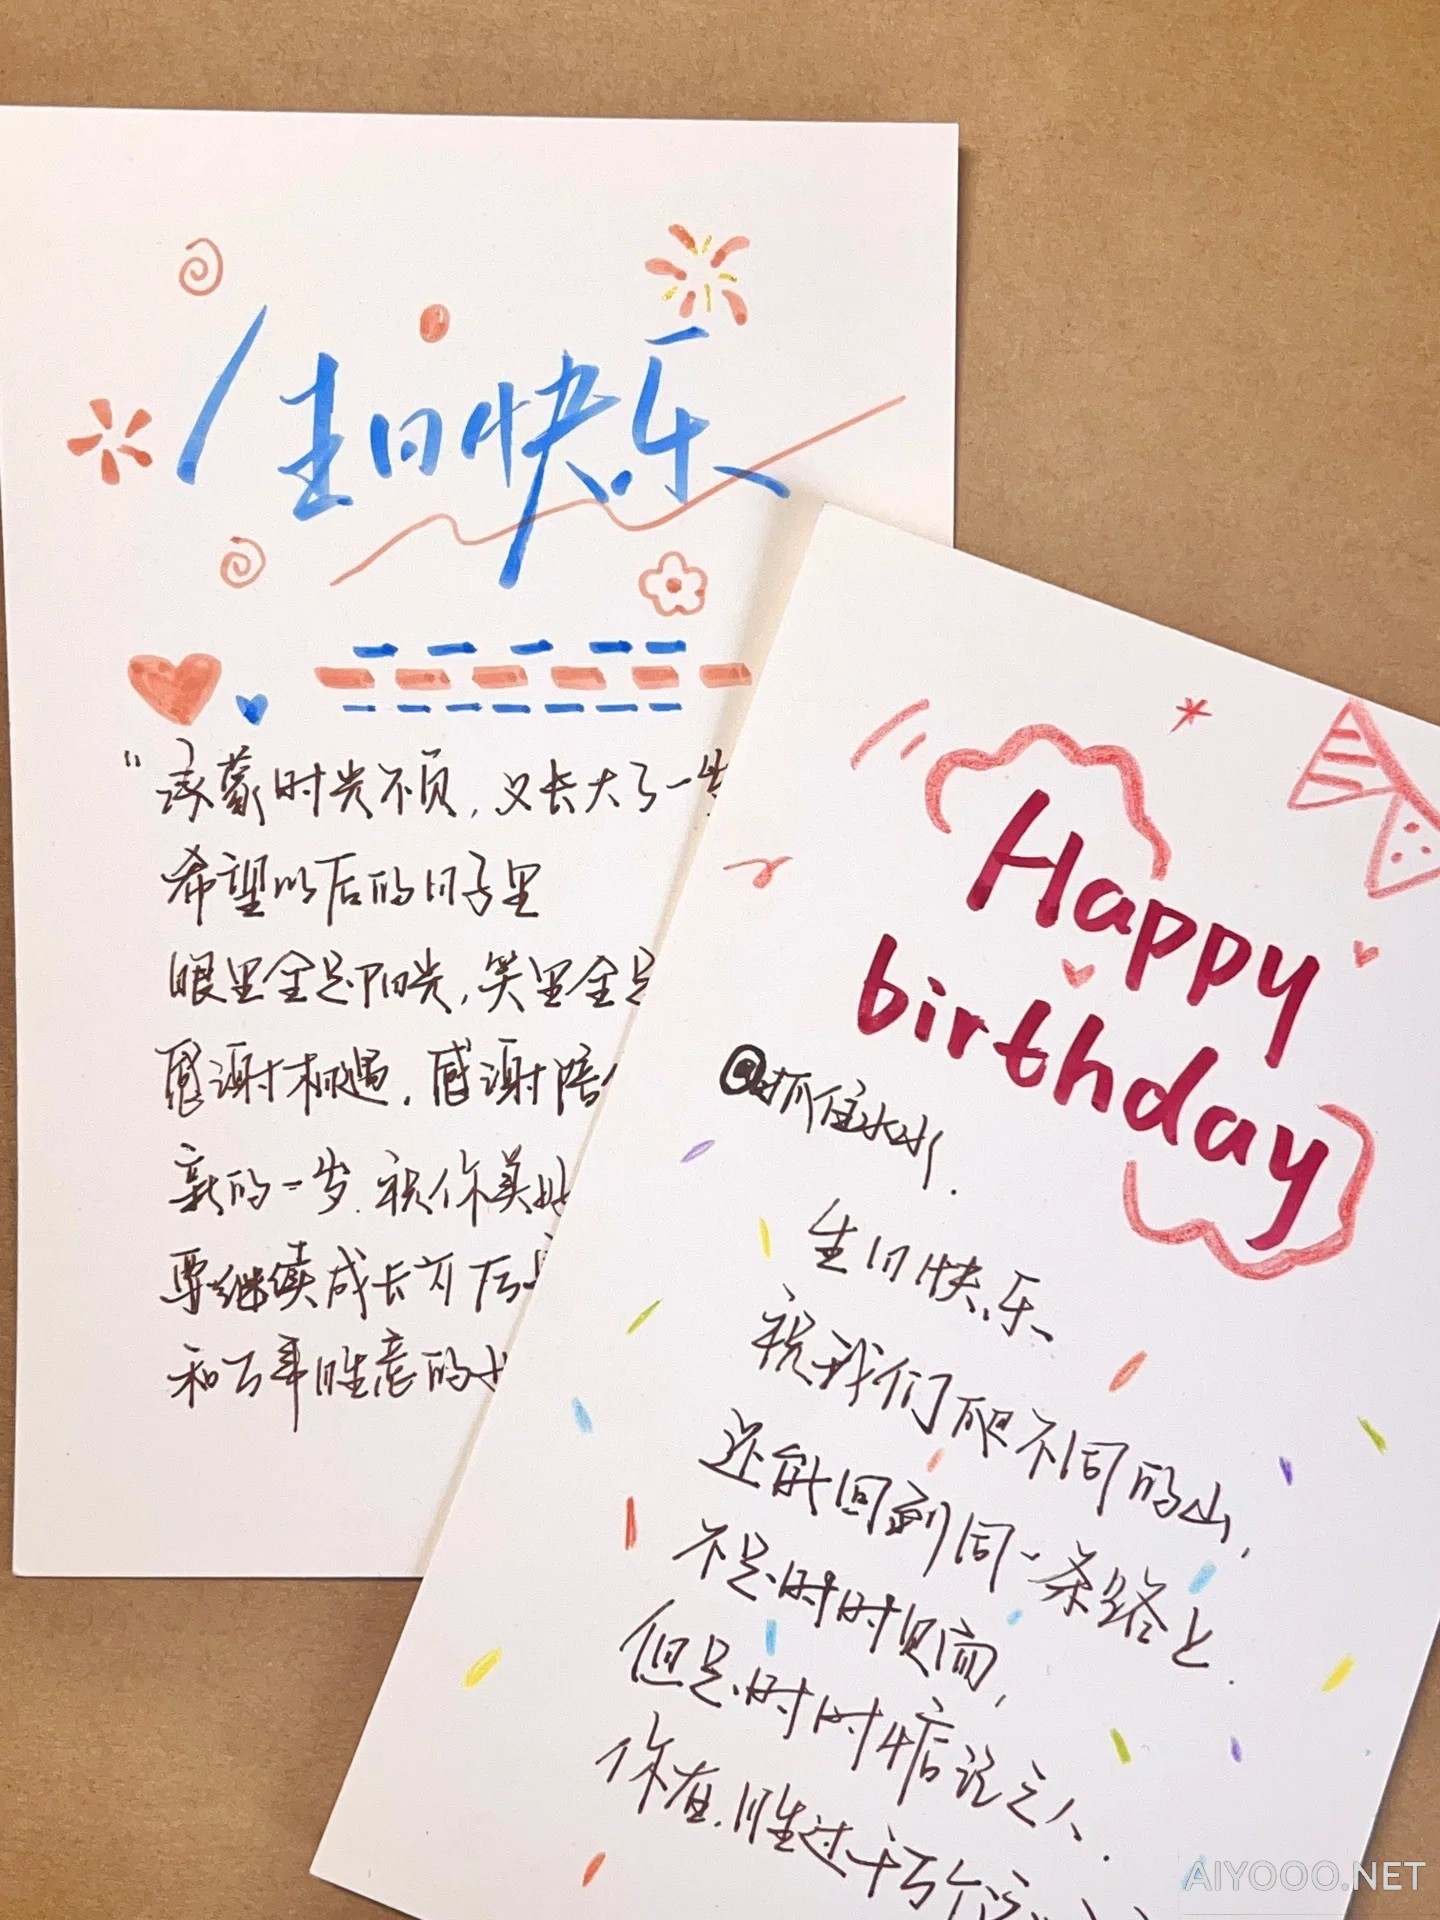 生日快乐
"承蒙时光不负,又长大了一岁
希望以后的日子里
眼里全是阳光,笑里全是
感谢相遇.感谢陪
新的一岁.祝你美好
要继续成长为
和万事胜意的
Happy
birthday
@抓住水水.
生日快乐
祝我们爬不同的山,
还能回到同一条路上.
不是时时见面,
但是时时惦记之人.
你在.胜过千万个
AIYOOO.NET